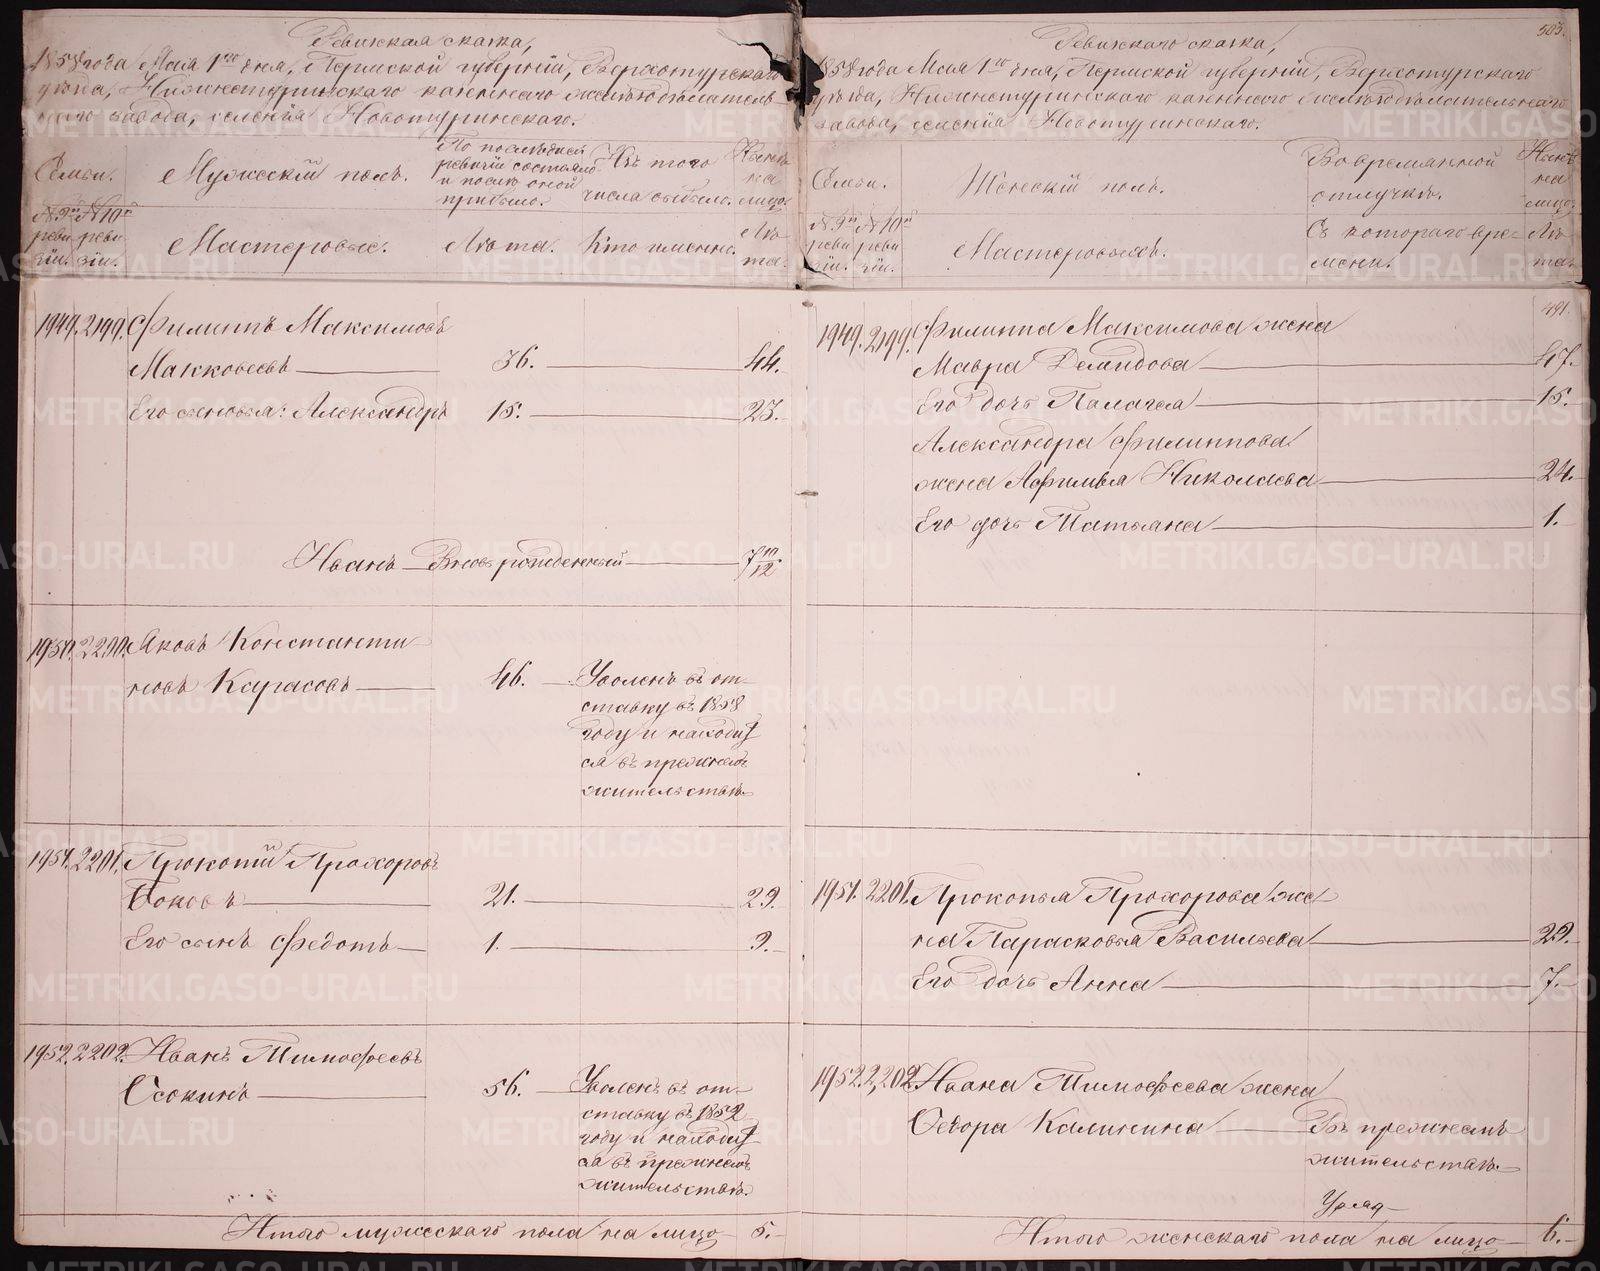 Ревизская сказка,
1858 года Мая 1го дня, Пермской губернiи, Верхотурскаго
уѣзда, Нижнетуринскаго казеннаго желѣзодѣлатель-
наго завода, селенiя Новотуринскаго.
Семьи.
Мужескiй полъ.
По послѣдней
ревизiи состояло
и послѣ оной
прибыло.
Изъ того
числа выбыло.
Нынѣ
на
лицо.
№ 9й № 10й
реви реви
зiи. зiи.
Мастеровые.
Лѣта.
Кто именно.
Лѣ
та.
1949. 2199. Филиппъ Максимовъ
Макковеевъ 36. 44.
Его сыновья: Александръ 15. 23.
Иванъ Вновь рожденный 7 м/12
1950. 2200. Яковъ Константи
новъ Карасовъ 46. Уволенъ въ от-
ставку въ 1858
году и находит
ся въ прежнемъ
жительствѣ.
1951. 2201. Прокопiй Прохоровъ
Боковъ 21. 29.
Его сынъ Федотъ 1. 9.
1952. 2202. Иванъ Тимофеевъ
Осокинъ 56. Уволенъ въ от-
ставку въ 1852
году и находит
ся въ прежнемъ
жительствѣ.
Итого мужескаго пола на лицо 5.
503.
Ревизскаго сказка,
1858 года Мая 1го дня, Пермской губернiи, Верхотурскаго
уѣзда, Нижнетуринскаго казеннаго желѣзодѣлательнаго
завода, селенiя Новотуринскаго.
Семьи.
Женескiй полъ.
Во временной
отлучкѣ.
Нынѣ
на
лицо.
№ 9й № 10й
реви реви
зiи. зiи.
Мастеровыхъ.
Съ котораго вре-
мени.
Лѣ
та.
491.
1949. 2199. Филиппа Максимова жена
Мавра Демидова 47.
Его дочь Палагея 15.
Александра Филиппова
жена Афимья Николаева 24.
Его дочь Татьяна 1.
1951. 2201. Прокопья Прохорова же
на Парасковья Васильева 29.
Его дочь Анна 7.
1952. 2,202. Ивана Тимофеева жена
Ѳеѣора Калинина Въ прежнемъ
жительствѣ.
Итого женскаго пола на лицо 6.
METRIKI.GASO-URAL.RU